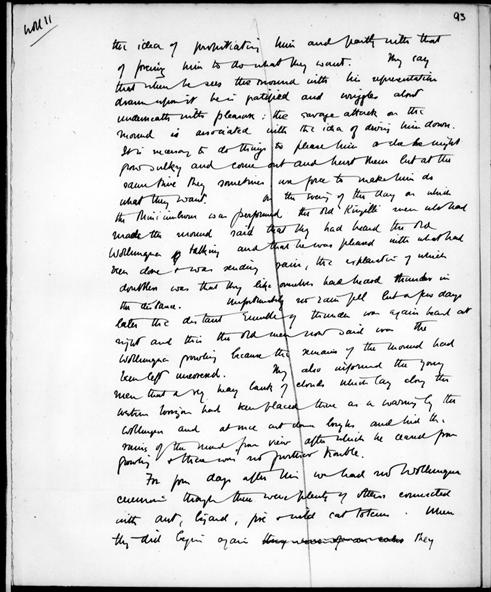 Woll 11
93
the idea of propitiating him and partly with that
of forcing him to do what they want. They say
that when he sees the mound with his representation
drawn upon it he is gratified and wriggles about
underneath with pleasure: the savage attack on the
mound is associated with the idea of driving him down.
It is necessary to do things to please him or else he might
grow sulky and come out and hurt them but at the
same time they sometimes use force to make him do
what they want. On the evening of the day on which
the was performed the old Kingilli men who had
made the mound said that they had heard the old
Wollunqua talking and that he was pleased with what had
been done & was sending rain, the explanation of which
doubtless was that they like ourselves had heard thunder in
the distance. Unfortunately no rain fell but a few days
later the distant rumble of thunder was again heard at
night and this the old men now said was the
Wollunqua growling because the remains of the mound had
been left uncovered. They also informed the young
men that a very heavy bank of clouds which lay along the
western horizon had been placed there as a warning by the
Wollunqua and at once cut down boughs and hid the
ruins of the mound from view after which he ceased from
growling & there was no further trouble.
For four days after this we had no Wollunqua
ceremonies though there were plenty of others connected
with ant, lizard, fire & wild cat totems. When
they did begin again they